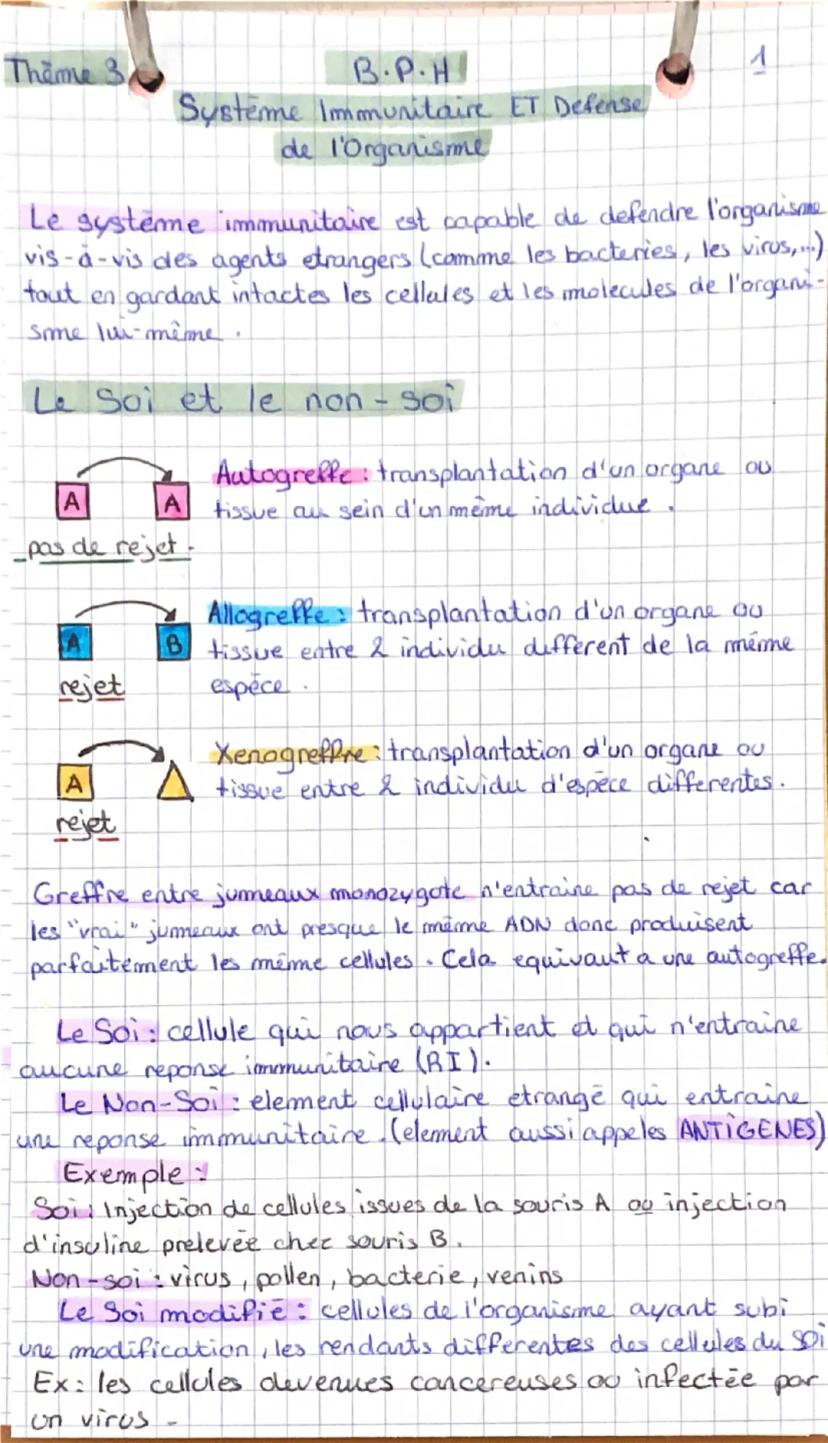 Thème 3
B.P.H
1
Système Immunitaire ET Defense
de l'Organisme
Le système immunitaire est capable de defendre l'organisme
vis-à-vis des agents etrangers (comme les bacteries, les virus,...)
tout en gardant intactes les cellules et les molecules de l'organi-
sme lui-même.
Le Soi et le non-soi
A A
Autogreffe : transplantation d'un organe ou
tissue au sein d'un même individue.
pas de rejet.
A B
Allogreffe : transplantation d'un organe ou
tissue entre 2 individu different de la même
rejet
espèce.
A
Xenogreffre : transplantation d'un organe ou
tissue entre 2 individu d'espèce differentes.
rejet
Greffre entre jumeaux monozygote n'entraine pas de rejet car
les "vrai" jumeaux ont presque le même ADN donc produisent
parfaitement les même cellules. Cela equivaut a une autogreffe.
Le Soi : cellule qui nous appartient et qui n'entraine
aucune reponse immunitaire (RI).
Le Non-Soi : element cellulaire etrangé qui entraine
une reponse immunitaire. (element aussi appeles ANTIGENES)
Exemple :
Soi : Injection de cellules issues de la souris A ou injection
d'insuline prelevée chez souris B.
Non-soi : virus, pollen, bacterie, venins
Le Soi modifié : cellules de l'organisme ayant subi
une modification, les rendants differentes des cellules du soi
Ex : les cellules devenues cancereuses ou infectée par
un virus -